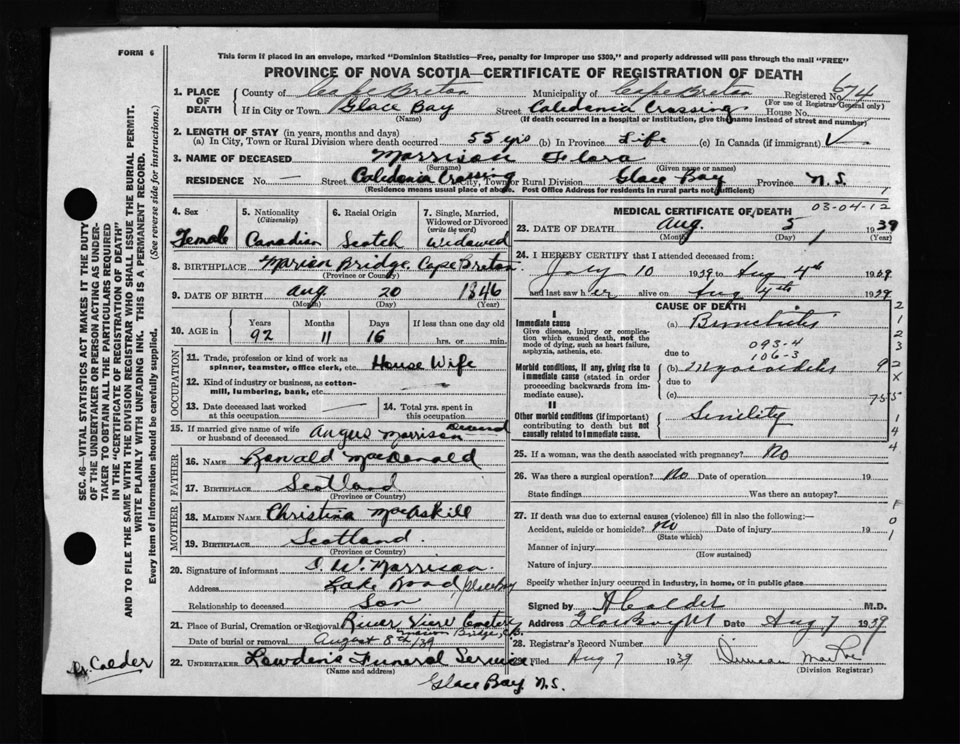 FORM 6
This form if placed in an envelope, marked "Dominion Statistics—Free, penalty for improper use $300," and properly addressed will pass through the mail "FREE"
PROVINCE OF NOVA SCOTIA—CERTIFICATE OF REGISTRATION OF DEATH
1. PLACE OF DEATH County of Cape Breton Municipality of Cape Breton Registered No. 674
(For use of Registrar General only)
If in City or Town Glace Bay Street Caledonia Crossing House No.
(Name) (If death occurred in a hospital or institution, give the name instead of street and number)
2. LENGTH OF STAY (in years, months and days)
(a) In City, Town or Rural Division where death occurred 55 yrs (b) In Province Life (c) In Canada (if immigrant)
3. NAME OF DECEASED Morrison Flora
(Surname) (Given name or names)
RESIDENCE No. — Caledonia Crossing City, Town or Rural Division Glace Bay Province N.S.
(Residence means usual place of abode. Post Office Address for residents in rural parts not sufficient)
4. Sex Female
5. Nationality (Citizenship) Canadian
6. Racial Origin Scotch
7. Single, Married, Widowed or Divorced (write the word) Widowed
8. BIRTHPLACE Marion Bridge, Cape Breton
(Province or Country)
9. DATE OF BIRTH Aug 20 1846
(Month) (Day) (Year)
10. AGE in Years 92 Months 11 Days 16 If less than one day old hrs. or min.
OCCUPATION
11. Trade, profession or kind of work as spinner, teamster, office clerk, etc. House Wife
12. Kind of industry or business, as cotton-mill, lumbering, bank, etc. —
13. Date deceased last worked at this occupation —
14. Total yrs. spent in this occupation
15. If married give name of wife or husband of deceased Angus Morrison
FATHER
16. NAME Ronald MacDonald
17. BIRTHPLACE Scotland
(Province or Country)
MOTHER
18. MAIDEN NAME Christina MacAskill
19. BIRTHPLACE Scotland.
(Province or Country)
20. Signature of informant Morrison.
Address Lake Road, Glace Bay
Relationship to deceased Son
21. Place of Burial, Cremation or Removal River View Marion Bridge, C.B.
Date of burial or removal August 8th/39
22. UNDERTAKER Lowden's Funeral Service
(Name and address)
Glace Bay N.S.
MEDICAL CERTIFICATE OF DEATH 03-04-12
23. DATE OF DEATH Aug. 5 1939
(Month) (Day) (Year)
24. I HEREBY CERTIFY that I attended deceased from:
July 10 1939 to Aug 4th 1939
and last saw her alive on Aug 4th 1939
CAUSE OF DEATH
I
Immediate cause
Give disease, injury or complication which caused death, not the mode of dying, such as heart failure, asphyxia, asthenia, etc.
(a) Bronchitis
093-4
106-3
due to
Morbid conditions, if any, giving rise to immediate cause (stated in order proceeding backwards from immediate cause).
(b) Myocarditis
due to
(c)
II
Other morbid conditions (if important) contributing to death but not causally related to immediate cause.
Senility
25. If a woman, was the death associated with pregnancy? No
26. Was there a surgical operation? No Date of operation 19
State findings Was there an autopsy?
27. If death was due to external causes (violence) fill in also the following:—
Accident, suicide or homicide? No Date of injury 19
(State which)
Manner of injury
(How sustained)
Nature of injury
Specify whether injury occurred in industry, in home, or in public place
Signed by A Calder M.D.
Address Date Aug 7 1939
28. Registrar's Record Number
Filed Aug 7 1939
(Division Registrar)
SEC. 46—VITAL STATISTICS ACT MAKES IT THE DUTY
OF THE UNDERTAKER OR PERSON ACTING AS UNDER-
TAKER TO OBTAIN ALL THE PARTICULARS REQUIRED
IN THE "CERTIFICATE OF REGISTRATION OF DEATH"
AND TO FILE THE SAME WITH THE DIVISION REGISTRAR WHO SHALL ISSUE THE BURIAL PERMIT.
WRITE PLAINLY WITH UNFADING INK. THIS IS A PERMANENT RECORD.
Every item of information should be carefully supplied. (See reverse side for instructions.)
Dr. Calder